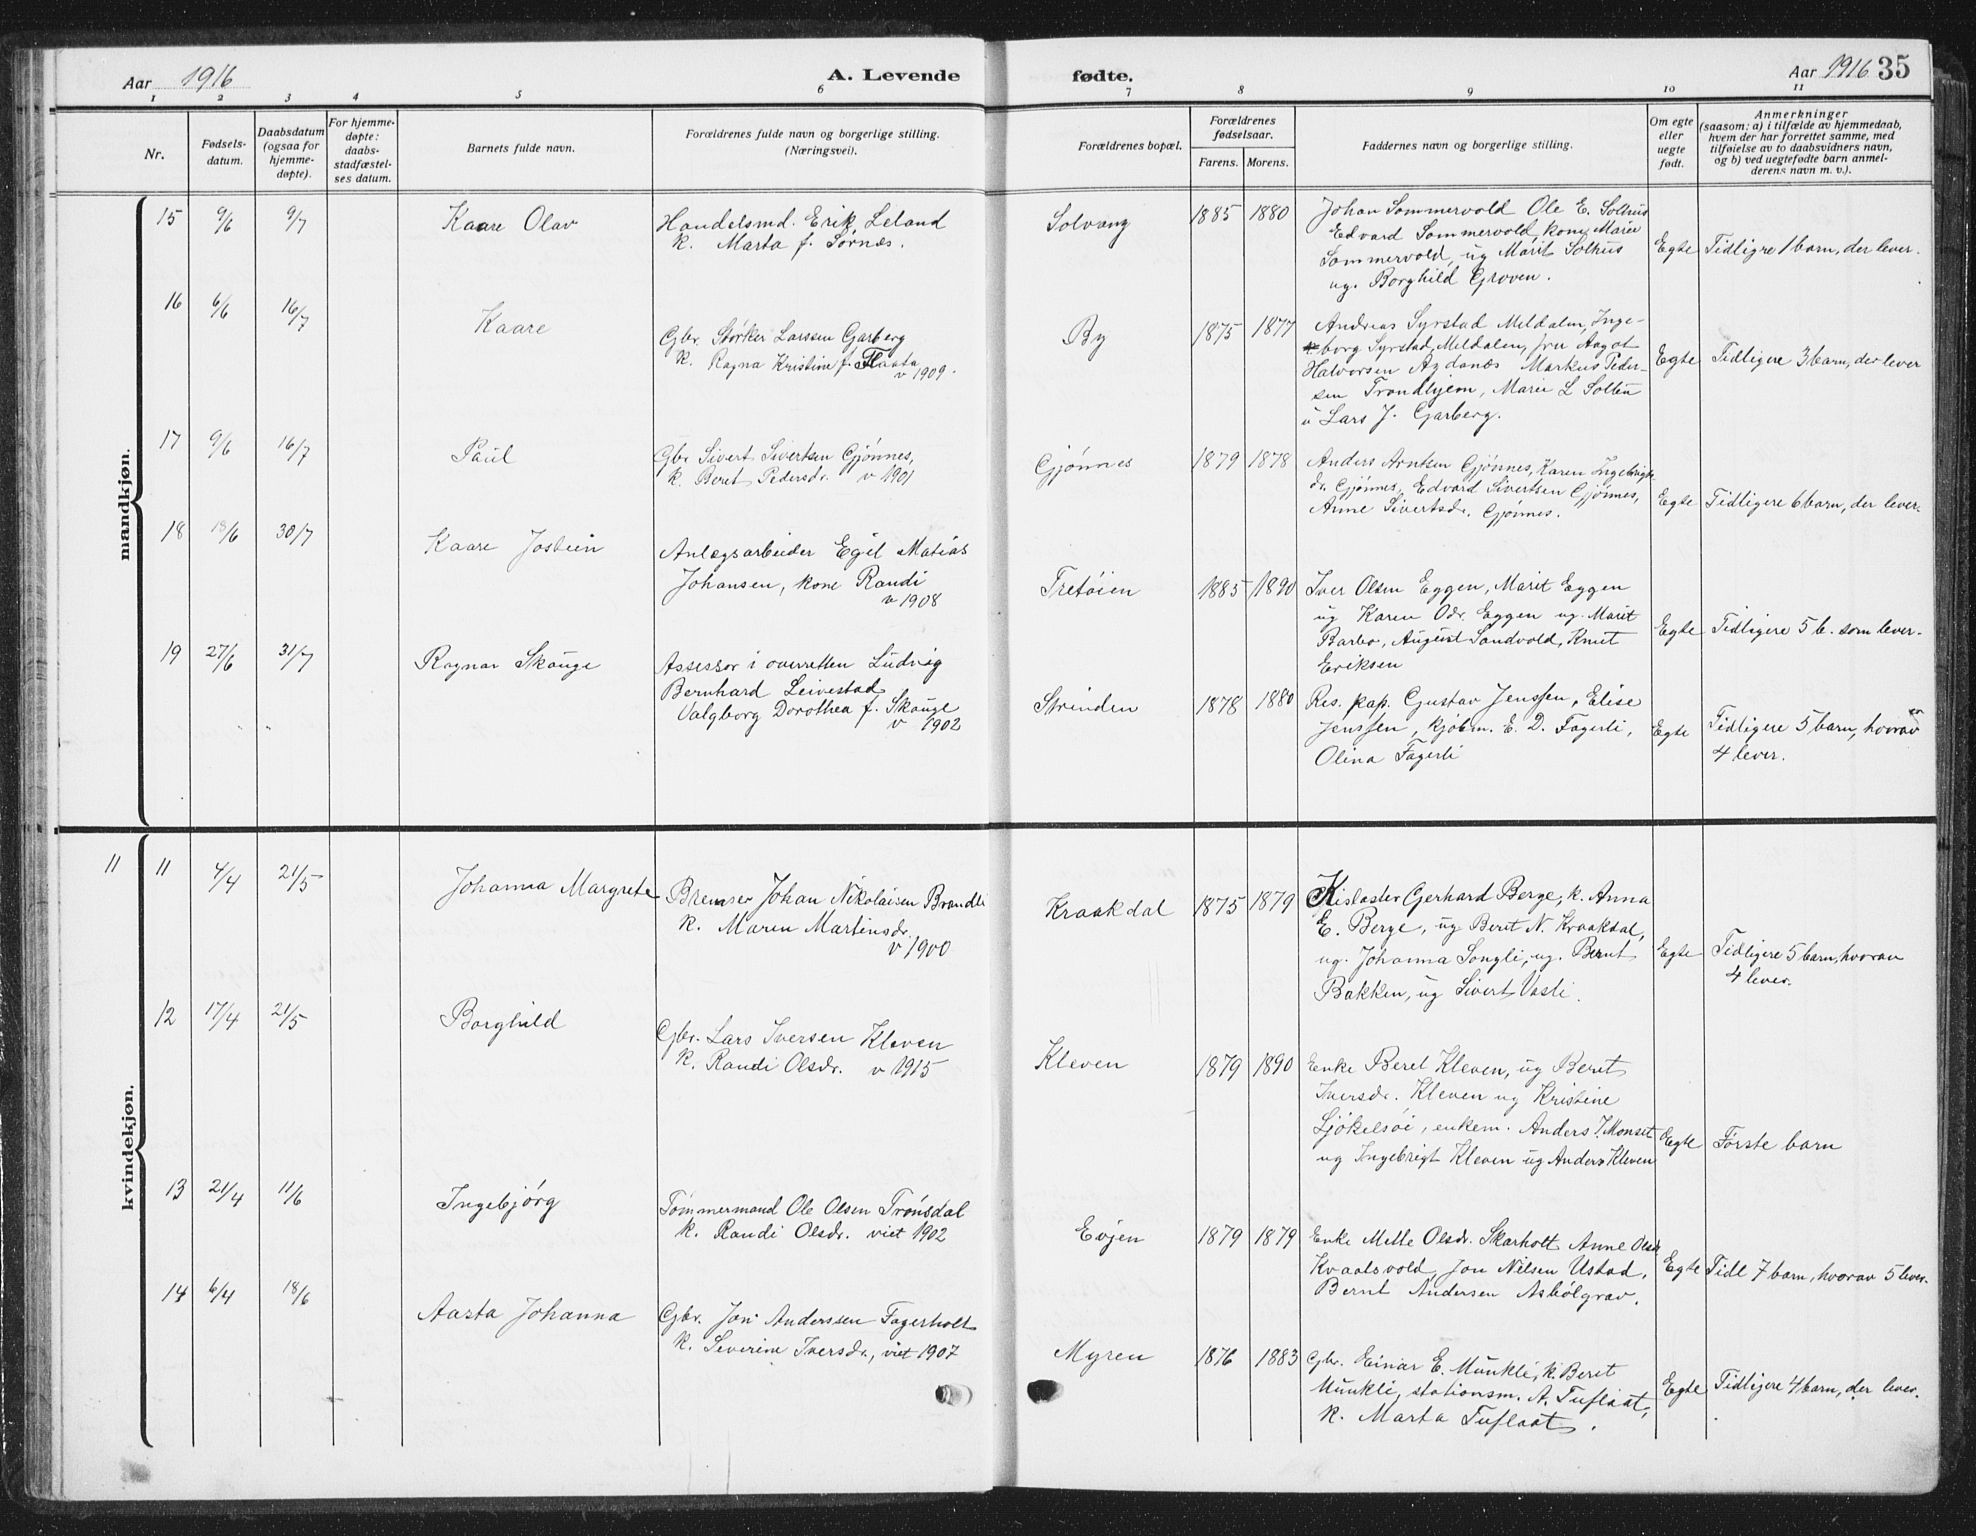 Aar 1916
A. Levende
fødte.
Aar 1916 35
1 2 3 4 5 6 7 8 9 10 11
Nr.
Fødsels-
datum.
Daabsdatum
(ogsaa for
hjemme-
døpte).
For hjemme-
døpte:
daabs-
stadfæstel-
ses datum.
Barnets fulde navn.
Forældrenes fulde navn og borgerlige stilling.
(Næringsvei).
Forældrenes bopæl.
Forældrenes
fødselsaar.
Farens. Morens.
Faddernes navn og borgerlige stilling.
Om egte
eller
uegte
født.
Anmerkninger
(saasom: a) i tilfælde av hjemmedaab,
hvem der har forrettet samme, med
tilføielse av to daabsvidners navn,
og b) ved uegtefødte barn anmel-
derens navn m. v.).
mandkjøn.
15 9/6 9/7 Kaare Olav
Handelsmd. Erik Leland
k. Marta f. Sørnæs.
Solvang 1885 1880
Johan Sommervold Ole E. Solhus
Edvard Sommervold, kone Marie
Sommervold, ug Marit Solhus
ug. Borghild Groven.
Egte Tidligre 1 barn, der lever.
16 6/6 16/7 Kaare
Gbr. Størker Larssen Garberg
k. Ragna Kristine f. Flaata
v 1909.
By 1875 1877
Andreas Syrstad Meldalen, Inge-
borg Syrstad, Meldalen, fru Aagot
Halvorsen Agdanæs Markus Peder-
sen Trondhjem, Marie L Solten
u Lars J. Garberg.
Egte Tidligere 3 barn, der lever
17 9/6 16/7 Paul
Gbr Sivert Sivertsen Gjønnes,
k. Beret Pedersdr. v 1901
Gjønnes 1879 1878
Anders Arntsen Gjønnes, Karen Ingebrigts-
dr. Gjønnes, Edvard Sivertsen Gjønnes,
Anne Sivertsdr. Gjønnes.
Egte Tidligere 6 barn, der lever.
18 18/6 30/7 Kaare Jostein
Anlægsarbeider Egil Matias
Johansen, kone Randi
v 1908
Tretøien 1885 1890
Iver Olsen Eggen, Marit Eggen
ug Karen Odr. Eggen ug. Marit
Barbo, August Sandvold, Knut
Eriksen
Egte Tidligere 5 b. som lever.
19 27/6 31/7 Ragnar Skauge
Assessor i overretten Ludvig
Bernhard Leivestad
Valgborg Dorothea f. Skauge
v 1902
Strinden 1878 1880
Res. kap. Gustav Jenssen, Elise
Jenssen, kjøbm. E. D. Fagerli,
Olina Fagerli
Egte Tidligere 5 barn, hvorav
4 lever.
kvindekjøn.
11 11 4/4 21/5 Johanna Margrete
Bremser Johan Nikolaisen Brandli
k. Maren Martinsdr.
v 1900
Kraakdal 1875 1879
Gerhard Berge, k. Anna
E. Berge, ug Beret N. Kraakdal,
ug. Johanna Songli, ug. Bernt
Bakken, ug Sivert Vasli.
Egte Tidligere 5 barn, hvorav
4 lever.
12 17/4 21/5 Borghild
Gbr. Lars Iversen Kleven
k. Randi Olsdr. v 1915
Kleven 1879 1890
Enke Beret Kleven, ug Beret
Iversdr. Kleven ug Kristine
Ljøkelsøi, enkem. Anders J. Monset
ug Ingebrigt Kleven ug Anders Kleven
Egte Første barn
13 21/4 11/6 Ingebjørg
Tømmermand Ole Olsen Trønsdal
k. Randi Olsdr. viet 1902
Evjen 1879 1879
Enke Mette Olsdr. Skarholt Anne Olsdr
Kvaalsvold, Jon Nilsen Ustad,
Bernt Andersen Asbølgrav.
Egte Tidl 7 barn, hvorav 5 lever.
14 6/4 18/6 Aasta Johanna
Gbr. Jon Anderssen Fagerholt
k. Severine Iversdr., viet 1907
Myren 1876 1883
Gbr. Einar E. Munkli, k. Beret
Munkli, stationsm. A. Tuflaat,
k. Marta Tuflaat.
Egte Tidligere 4 barn, der lever.